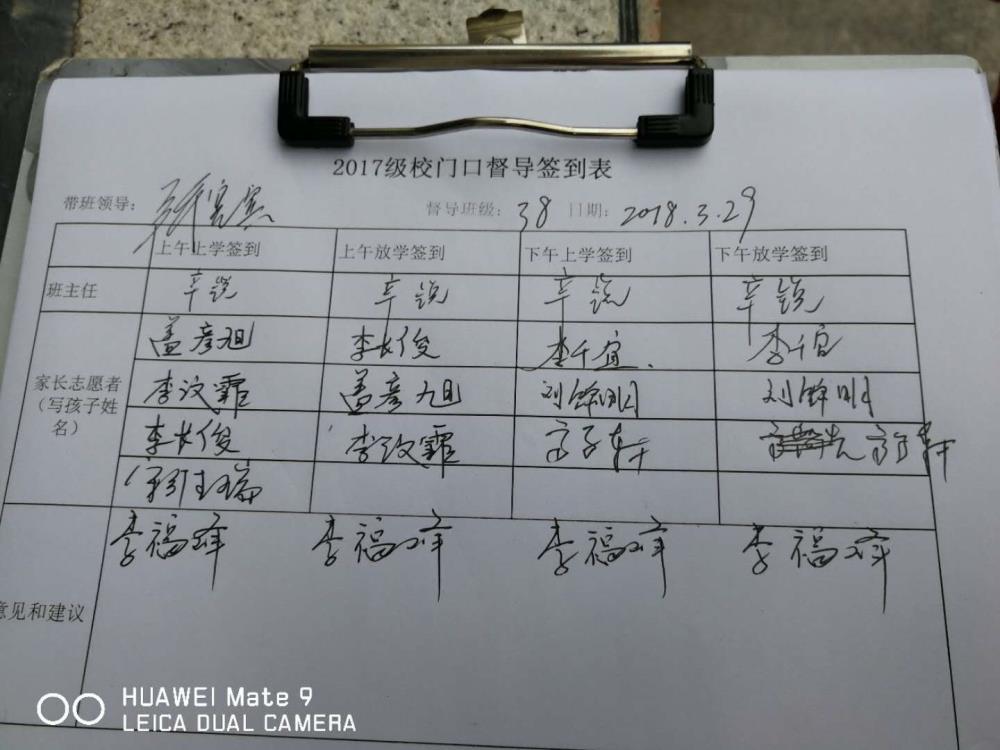 2017级校门口督导签到表
带班领导： 督导班级：38 日期：2018.3.29
上午上学签到 上午放学签到 下午上学签到 下午放学签到
班主任 辛锐 辛锐 辛锐 辛锐
盖彦旭 李长俊 李千宜. 李千宜
家长志愿者 李汶霏 盖彦旭 刘锦明 刘锦明
（写孩子姓 李长俊 李汶霏 高子轩 高子轩
名）
李福峰 李福峰 李福峰 李福峰
意见和建议
HUAWEI Mate 9
LEICA DUAL CAMERA